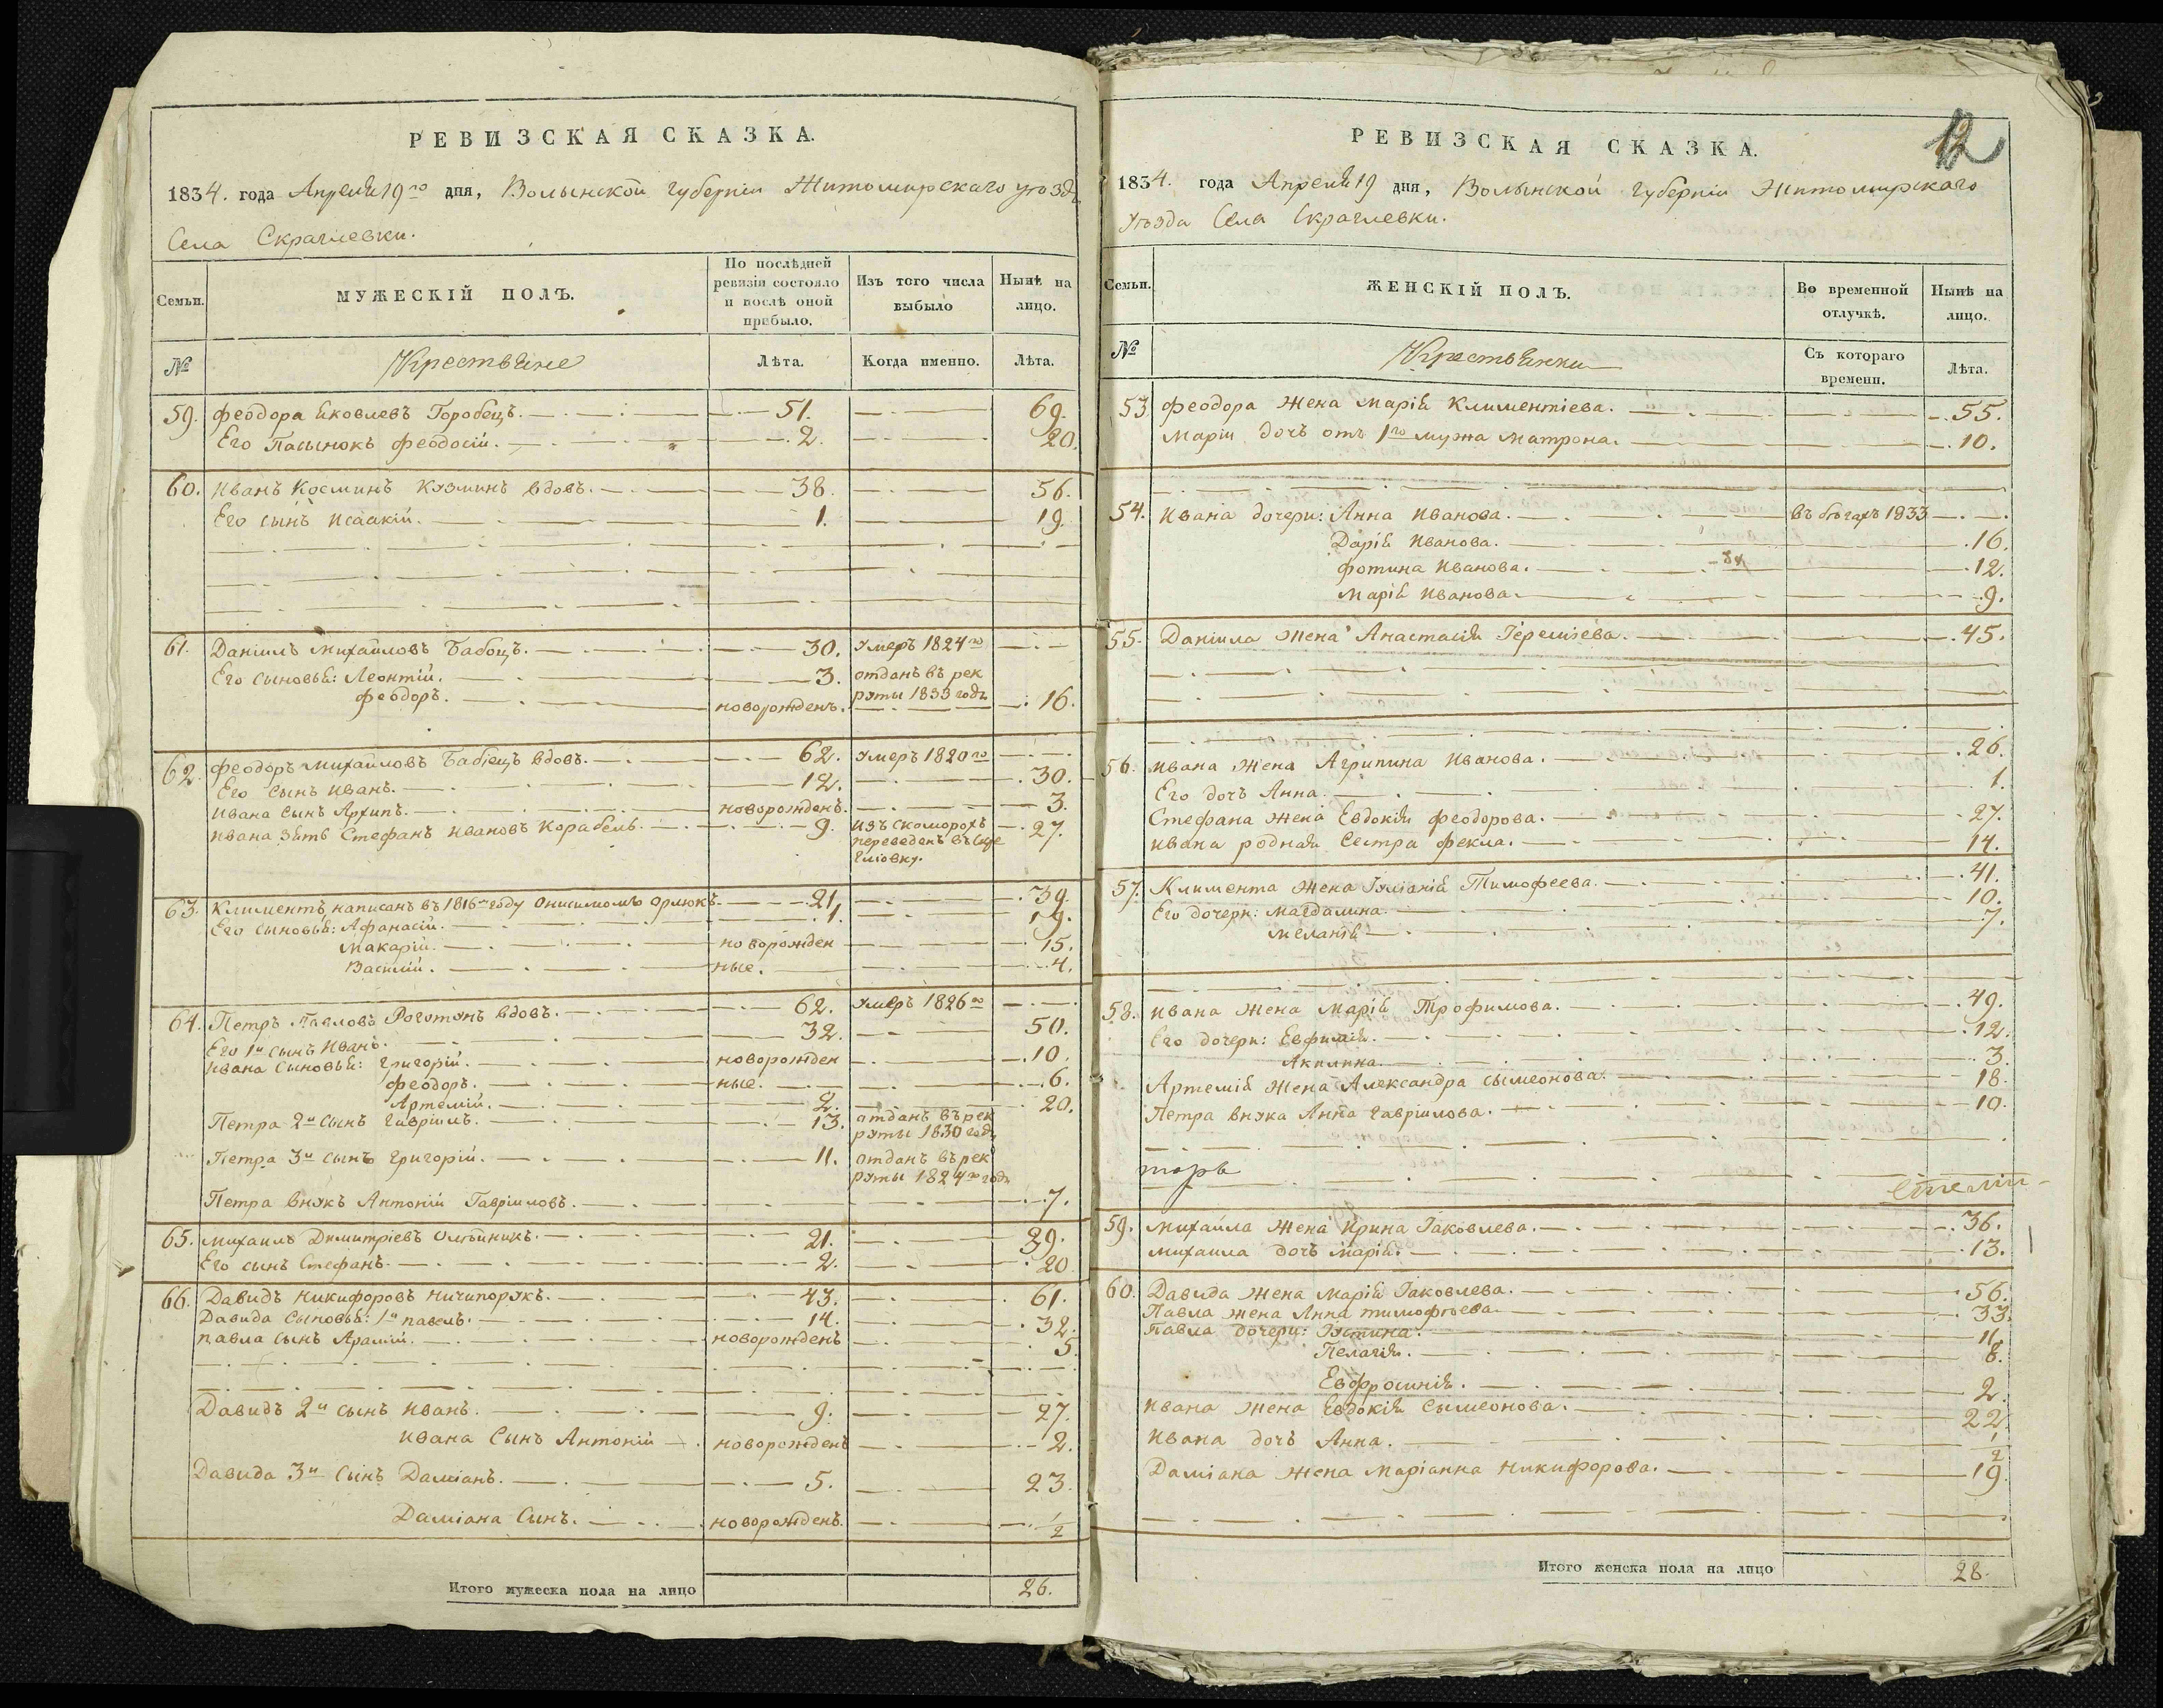 РЕВИЗСКАЯ СКАЗКА.
1834. года Апреля 19го дня, Волынской губерніи Житомирскаго уѣзда
Села Скраглевки.
Семьи.
МУЖЕСКІЙ ПОЛЪ.
По послѣдней ревизіи состояло и послѣ оной прибыло.
Изъ того числа выбыло
Нынѣ на лицо.
№
Крестьяне
Лѣта.
Когда именно.
Лѣта.
59. Феодора Яковлевъ Горобецъ. 51. 69.
Его Пасынокъ Феодосій. 2. 20.
60. Иванъ Косминъ Кузминъ вдовъ. 38. 56.
Его сынъ Исаакій. 1. 19.
61. Даніилъ Михайловъ Бабецъ. 30. умеръ 1824го
Его сыновья: Леонтій. 3. отданъ въ рек
руты 1833 года
Феодоръ. новорожденъ. 16.
62. Феодоръ Михайловъ Бабіецъ вдовъ. 62. умеръ 1820го
Его сынъ Иванъ. 12. 30.
Ивана сынъ Архипъ. новорожденъ. 3.
Ивана зять Стефанъ Ивановъ Корабель. 9. изъ скоморохъ 27.
переведенъ въ
63. Климентъ написанъ въ 1816м году Онисимомъ Орлюкъ. 21. 39.
Его сыновья: Афанасій. 1. 19.
Макарій. новорожден 15.
Василій. ные. 4.
64. Петръ Павловъ Роготунъ вдовъ. 62. умеръ 1826го
Его 1й сынъ Иванъ. 32. 50.
Ивана сыновья: Григорій. новорожден 10.
Феодоръ. ные. 6.
Артемій. 2. 20.
Петра 2й сынъ Гавріилъ. 13. отданъ въ рек
руты 1830 года
Петра 3й сынъ Григорій. 11. отданъ въ рек
руты 1824го года
Петра внукъ Антоній Гавріиловъ. 7.
65. Михаилъ Димитріевъ Олѣйникъ. 21. 39.
Его сынъ Стефанъ. 2. 20
66. Давидъ Никифоровъ Ничипорукъ. 43. 61.
Давида сыновья: 1й Павелъ. 14. 32.
Павла сынъ новорожденъ 5
Давидъ 2й сынъ Иванъ. 9. 27.
Ивана сынъ Антоній новорожденъ 2.
Давида 3й сынъ Даміанъ. 5. 23.
Даміана сынъ. новорожденъ. 1/2
Итого мужеска пола на лицо 26.
12
РЕВИЗСКАЯ СКАЗКА.
1834. года Апреля 19 дня, Волынской губерніи Житомирскаго
уѣзда Села Скраглевки.
Семьи.
ЖЕНСКІЙ ПОЛЪ.
Во временной отлучкѣ.
Нынѣ на лицо.
№
Крестьянки
Съ котораго времени.
Лѣта.
53 Феодора жена Марія Климентіева. 55.
Маріи дочь отъ 1го мужа Матрона. 10.
54. Ивана дочери: Анна Иванова. въ бѣгахъ 1833
Дарія Иванова. 16.
Фотина Иванова. 12.
Марія Иванова. 9.
55. Даніила жена Анастасія Іереміева. 45.
56. Ивана жена Агрипина Иванова. 26.
Его дочь Анна. 1.
Стефана жена Евдокія Феодорова. 27.
Ивана родная сестра Фекла. 14.
57. Климента жена Іуліанія Тимофеева. 41.
Его дочери: Магдалина. 10.
Меланія 7.
58. Ивана жена Марія Трофимова. 49.
Его дочери: Евфимія. 12.
Акилина. 3.
Артемія жена Александра Сымеонова. 18.
Петра внука Анна Гавріилова. 10.
59. Михайла жена Ирина Іаковлева. 36.
Михаила дочь Марія. 13.
60. Давида жена Марія Іаковлева. 56.
Павла жена Анна Тимофѣева. 33.
Павла дочери: Іустина. 11.
Пелагія. 8.
Евфросинія. 2.
Ивана жена Евдокія Сымеонова. 22.
Ивана дочь Анна. 1/2
Даміана жена Маріанна Никифорова. 19.
Итого женска пола на лицо 28.